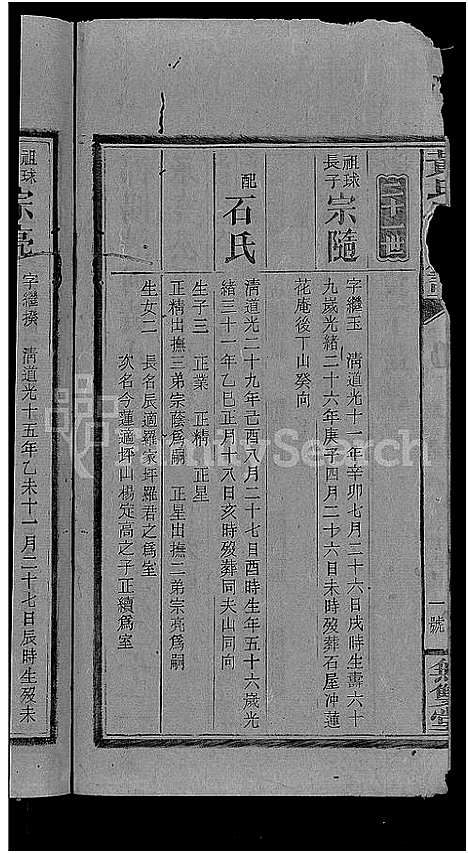 三十一世
祖球長子 宗隨
字繼玉 清道光十一年辛卯七月二十六日戌時生壽六十
九歲光緒二十六年庚子四月二十六日未時歿葬石屋冲蓮
花庵後丁山癸向
配 石氏
清道光二十九年己酉八月二十七日酉時生年五十六歲光
緒三十一年乙巳正月十八日亥時歿葬同夫山同向
生子三 正業 正精 正星
正精出撫三弟宗蔭為嗣 正星出撫二弟宗亮為嗣
生女二 長名辰適羅家坪羅君之為室
次名今蓮適坪山楊定高之子正續為室
祖球 宗亮
字繼揆 清道光十五年乙未十一月二十七日辰時生歿未
黃氏
一號
雙堂
FamilySearch